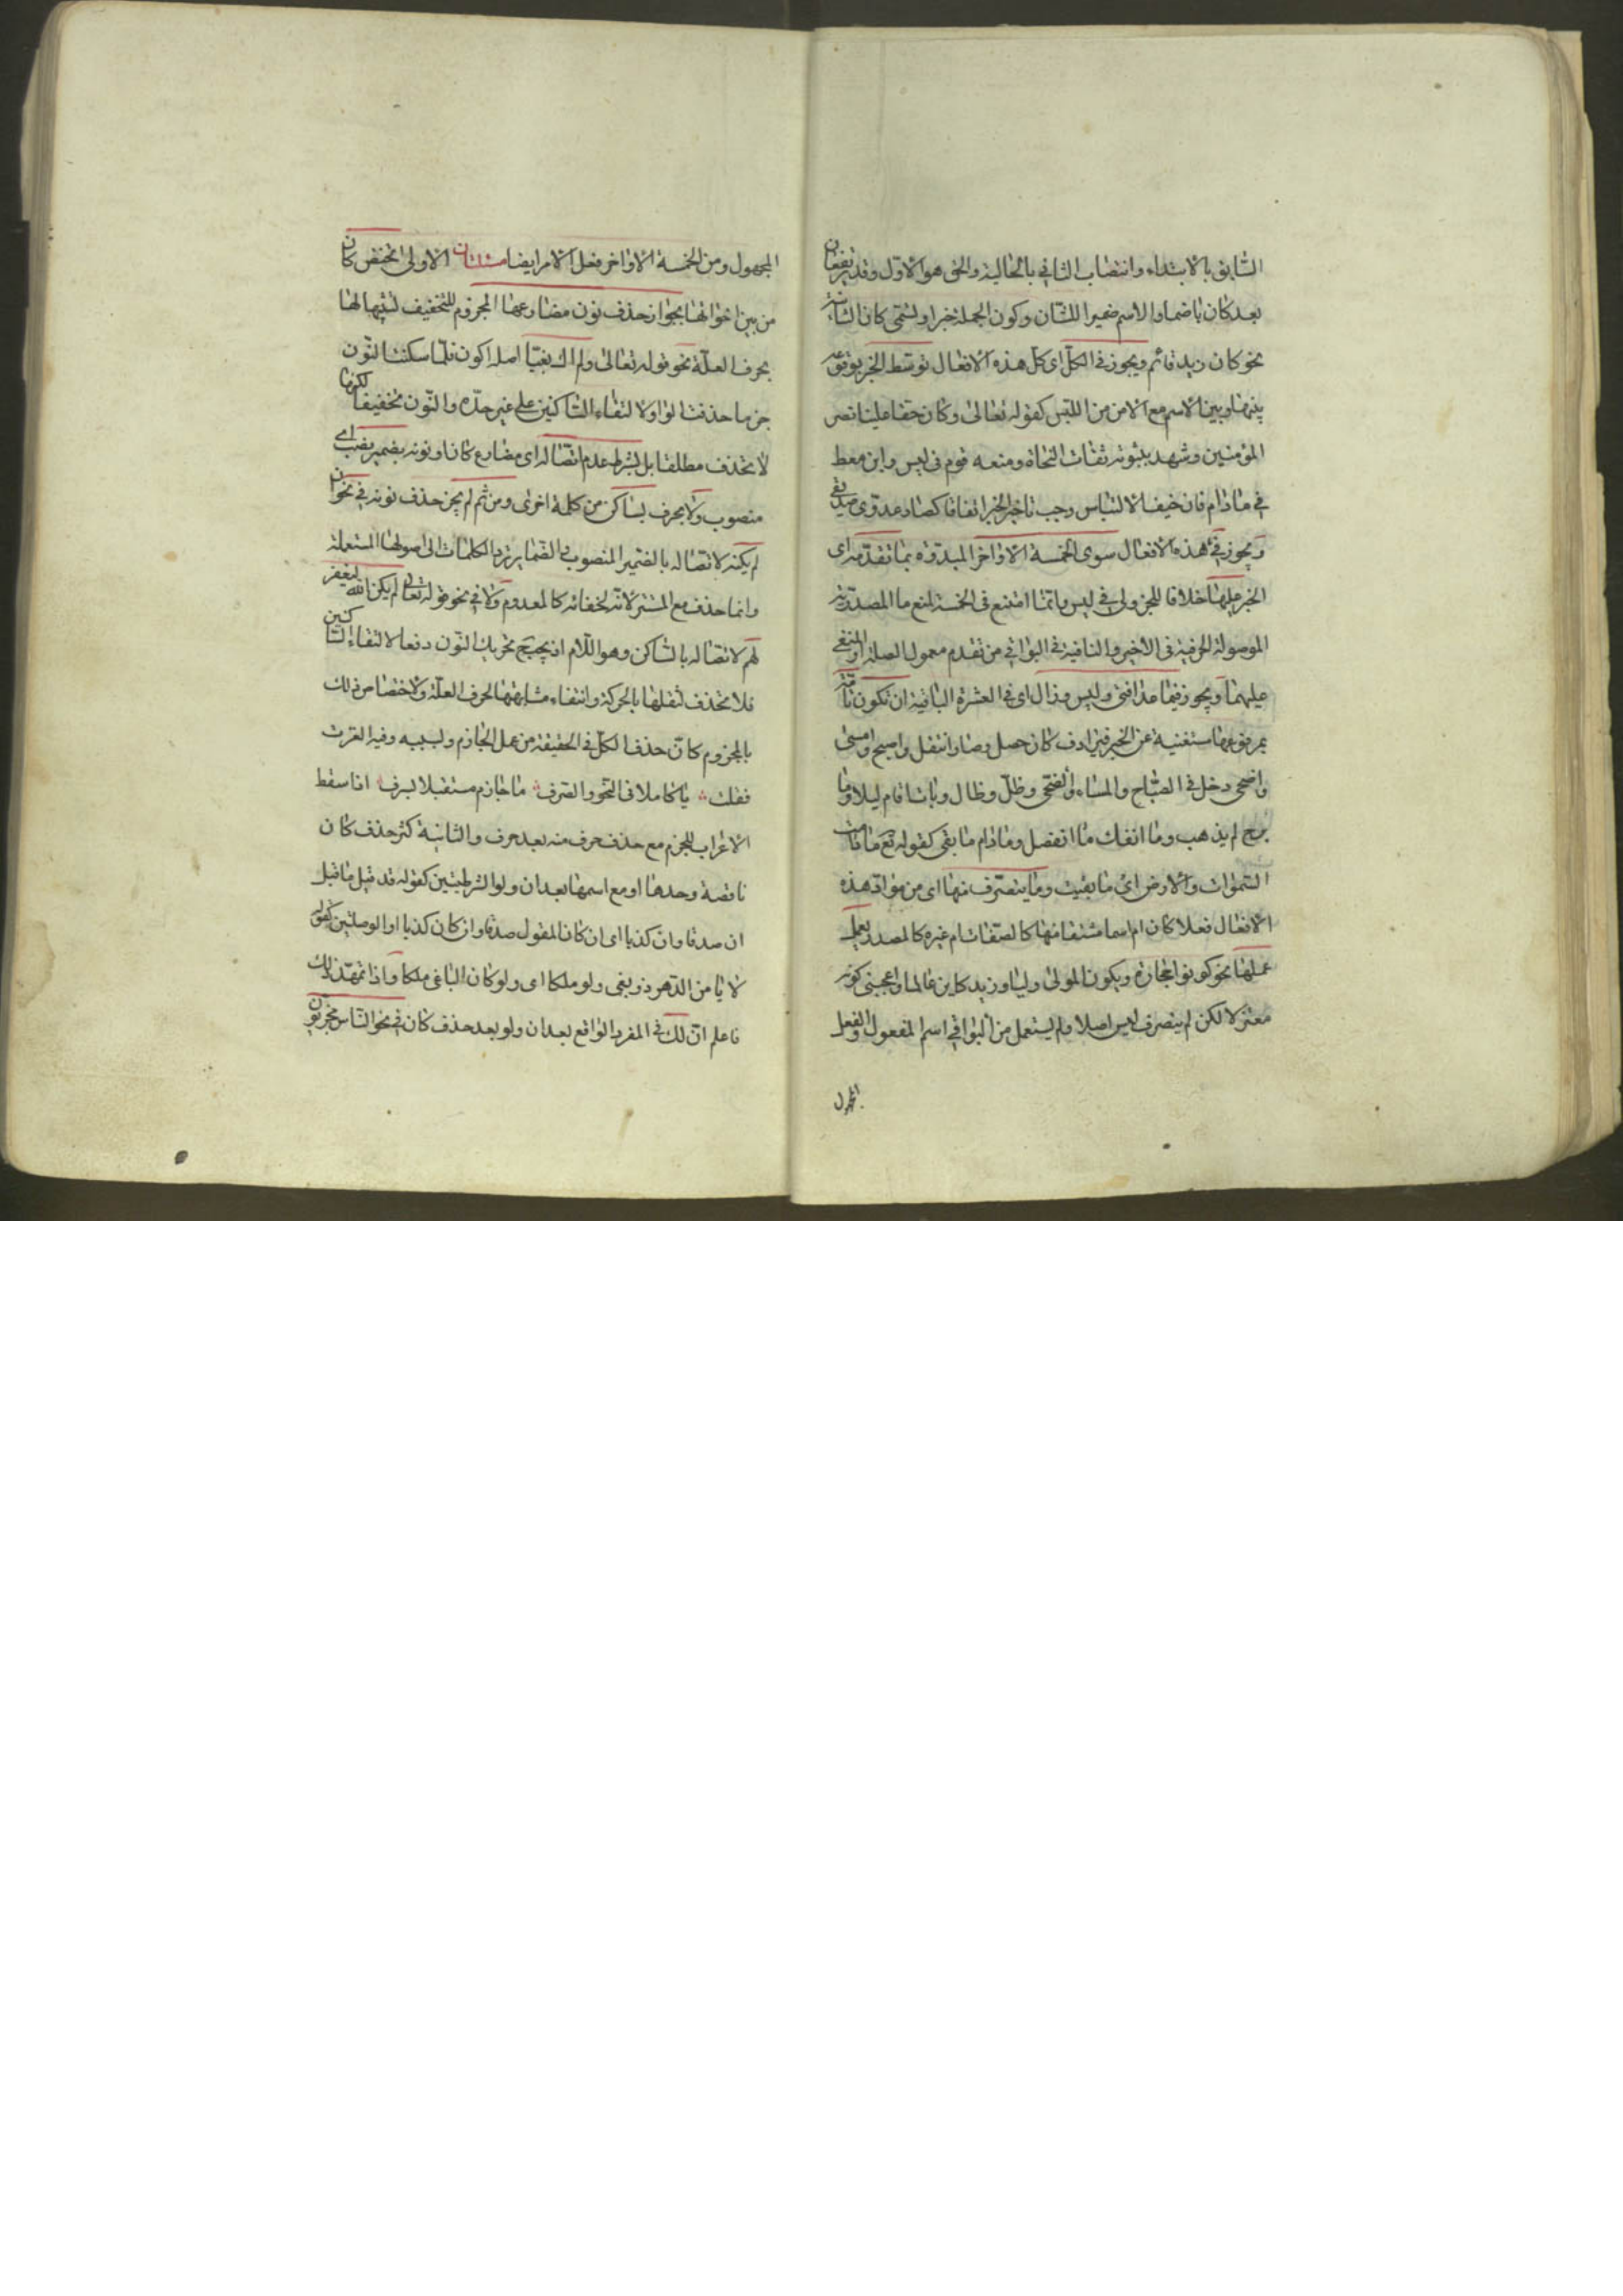 السّابق بالابتداء وانتصاب الثاني بالحالية والحق هو الاوّل وقد يرتفعان
بعد كان باضمار الاسم ضميرا للشّان وكون الجملة خبرا وتسمّى كان الشانية
نحو كان زيد قائم ويجوز في الكلّ اى كلّ هذه الافعال توسّط الخبر بوقوعه
بينها وبين الاسم مع الامن من اللبس كقوله تعالى وكان حقا علينا نصر
المؤمنين وشهد بثبوته ثقات النحاة ومنعه قوم فى ليس وابن معط
في مادام فان خيف الالتباس وجب تاخير الخبر اتفاقا كصار عدوّى صديقى
ويجوز في هذه الافعال سوى الخمسة الاواخر المبدوّة بما تقدّمه اى
الخبر عليها خلافا للجزولى في ليس وانّما امتنع فى الخمسة لمنع ما المصدرية
الموصولة الحرفية فى الاخير والنافية في البواقي من تقدم معمول الصلة او المنفى
عليهما ويجوز فيما عدا فتئ وليس وزال اى في العشرة الباقية ان تكون تامّة
بمرفوعها مستغنية عن الخبر فيرادف كان حصل وصار انتقل واصبح وامسى
واضحى دخل في الصّباح والمساء والضّحى وظلّ وظال وبات اقام ليلا وما
برح لم يذهب وما انفك ما انفصل ومادام ما بقى كقوله تع ما دامت
السّموات والارض اى ما بقيت وما يتصرّف منها اى من موادّ هذه
الافعال فعلا كان ام اسما مشتقا منها كالصّفات ام غيره كالمصدر يعمل
عملها نحو كونوا حجارة ويكون المولى وليّا وزيد كاين عالما واعجبنى كونه
معتزلا لكن لم يتصرف ليس اصلا ولم يستعمل من البواقي اسم المفعول والفعل
المجهول
المجهول ومن الخمسة الاواخر فعل الامر ايضا مسئلتان الاولى تختص كان
من بين اخواتها بجواز حذف نون مضارعها المجزوم للتخفيف لشبهها لها
بحرف العلّة نحو قوله تعالى ولم اك بغيّا اصله اكون فلمّا سكنت النّون
جزما حذفت الواو لالتقاء السّاكنين على غير حدّه والنّون تخفيفا لكونها
لا تحذف مطلقا بل بشرط عدم اتّصاله اى مضارع كان او نونه بضمير نصب اى
منصوب ولا بحرف ساكن من كلمة اخرى ومن ثم لم يجز حذف نونه في نحو ان
لم يكنه لاتصاله بالضمير المنصوب والضّماير تردّ الكلمات الى اصولها المستعملة
وانما حذف مع المستتر لانّه لخفائه كالمعدوم ولا في نحو قوله تعالى لم يكن الله ليغفر
لهم لاتصاله بالساكن وهو اللّام اذ يحتج تحريك النّون دفعا لالتقاء السّاكنين
فلا تحذف لثقلها بالحركة وانتفاء مشابهتها لحرف العلّة ولاختصاص ذلك
بالمجزوم كانّ حذف الكلّ في الحقيقة من عمل الجازم ولسببه وفيه الغزت
فقلت يا كاملا في النّحو والصّرف ما جازم مستقبلا لبرف اذا سقط
الاعراب للجزم مع حذف حرف منه بعد حرف والثانية كثر حذف كان
ناقصة وحدها او مع اسمها بعد ان ولو الشرطيتين كقوله قد قيل ما قيل
ان صدقا وان كذبا اى ان كان المقول صدقا وان كان كذبا او الوصلتين كقوله
لا يامن الدّهر ذو بغى ولو ملكا اى ولو كان الباغى ملكا واذا تمهّد ذلك
فاعلم انّ لك في المفرد الواقع بعد ان ولو بعد حذف كان في نحو النّاس مجزيون